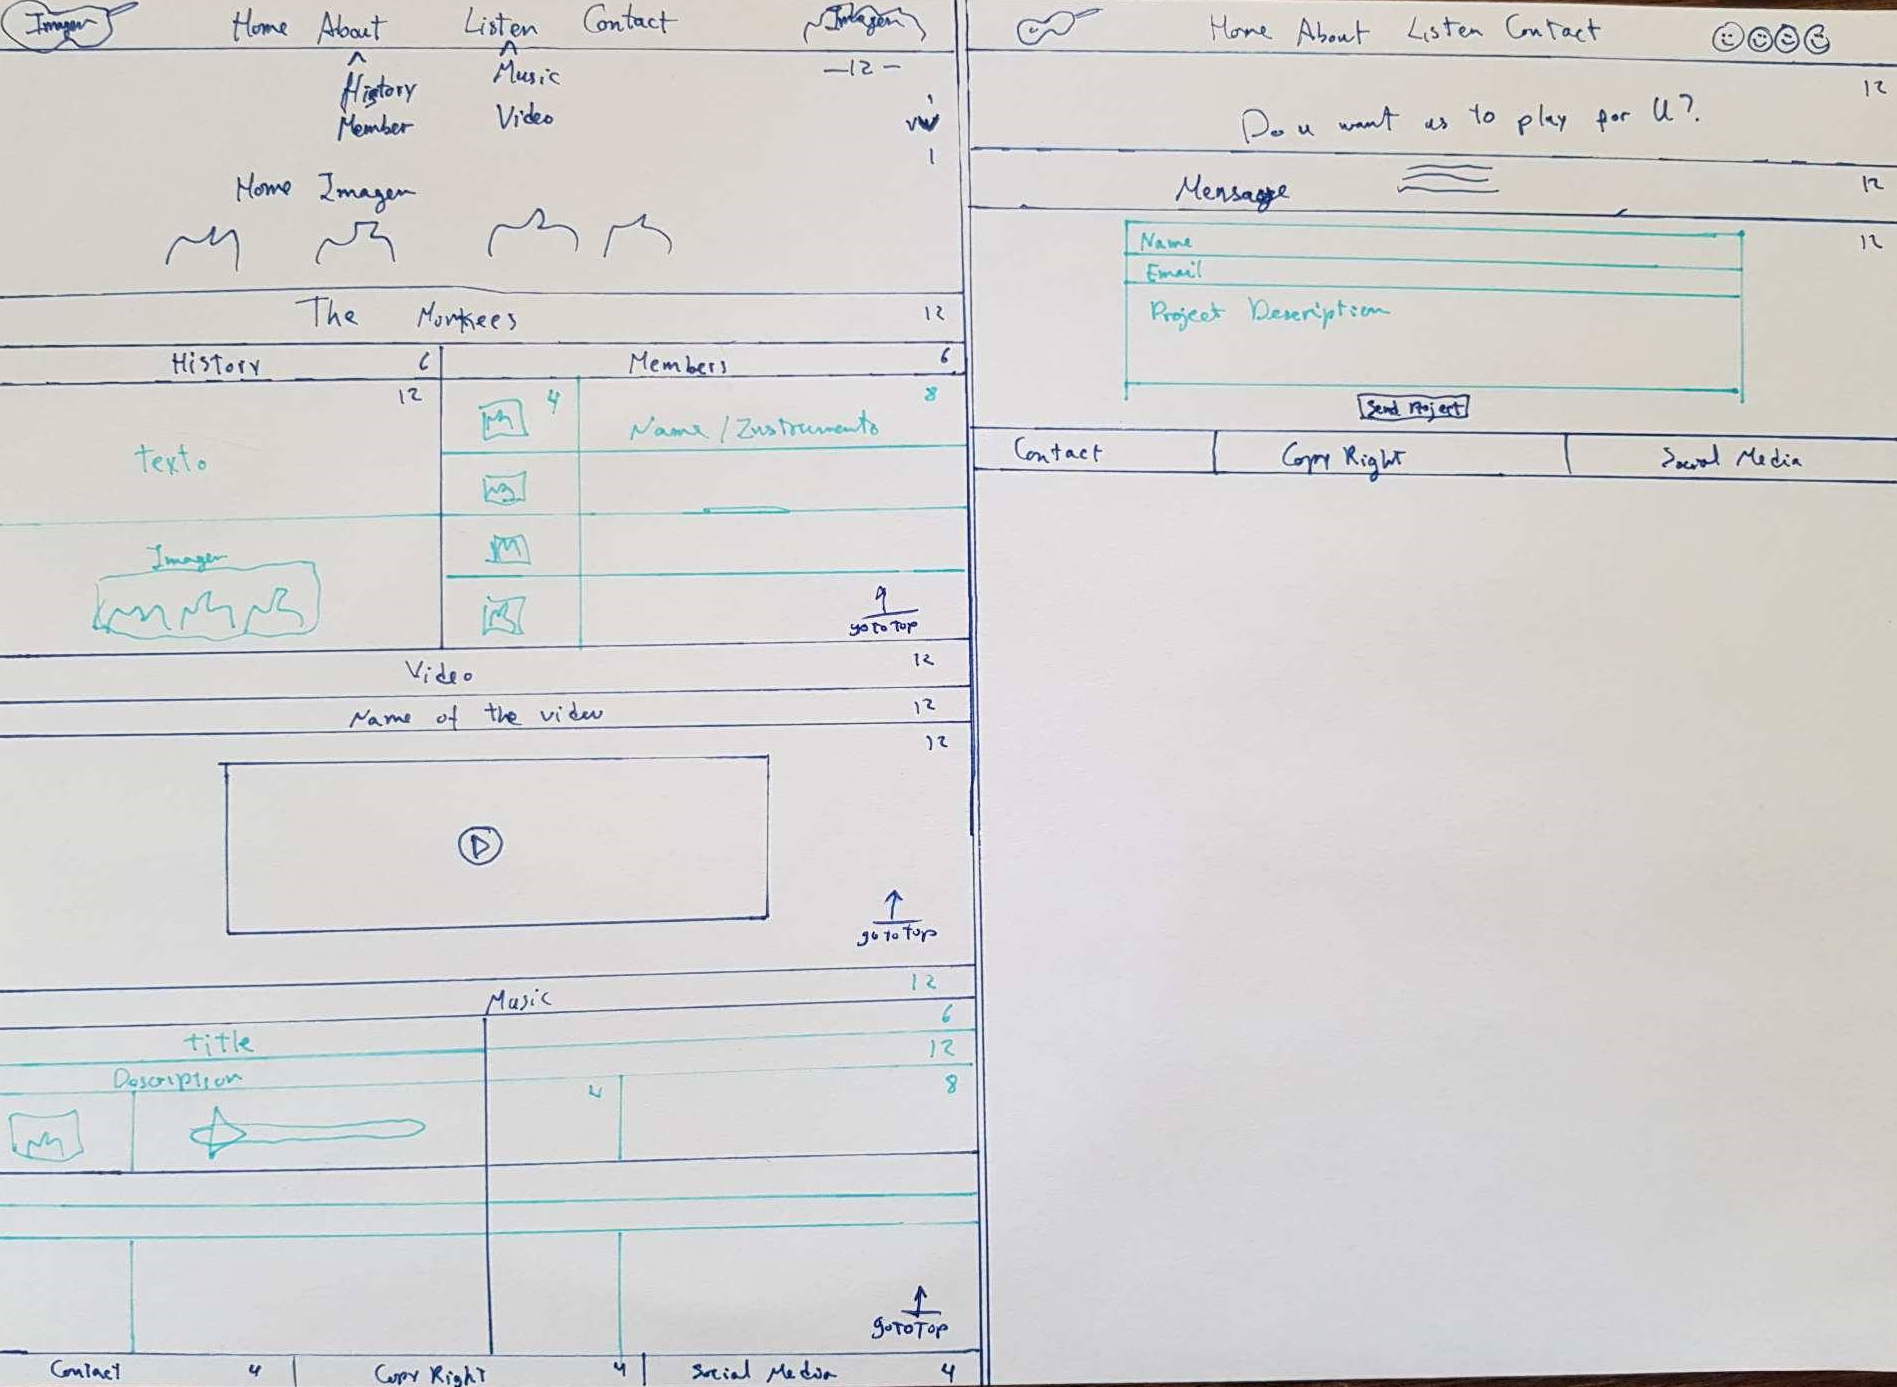 Imagen Home About Listen Contact Imagen
History Music -12-
Member Video
1
Home Imagen
The Monkees 12
History 6 Members 6
12 4 8
Name / Instrumento
texto
Imagen
go to top
Video 12
Name of the video 12
12
go to top
12
Music
6
title 12
Description
4 8
go to top
Contact 4 Copy Right 4 Social Media 4
Home About Listen Contact
12
Do u want us to play for U?
Mensage 12
12
Name
Email
Project Description
Send Project
Contact Copy Right Social Media